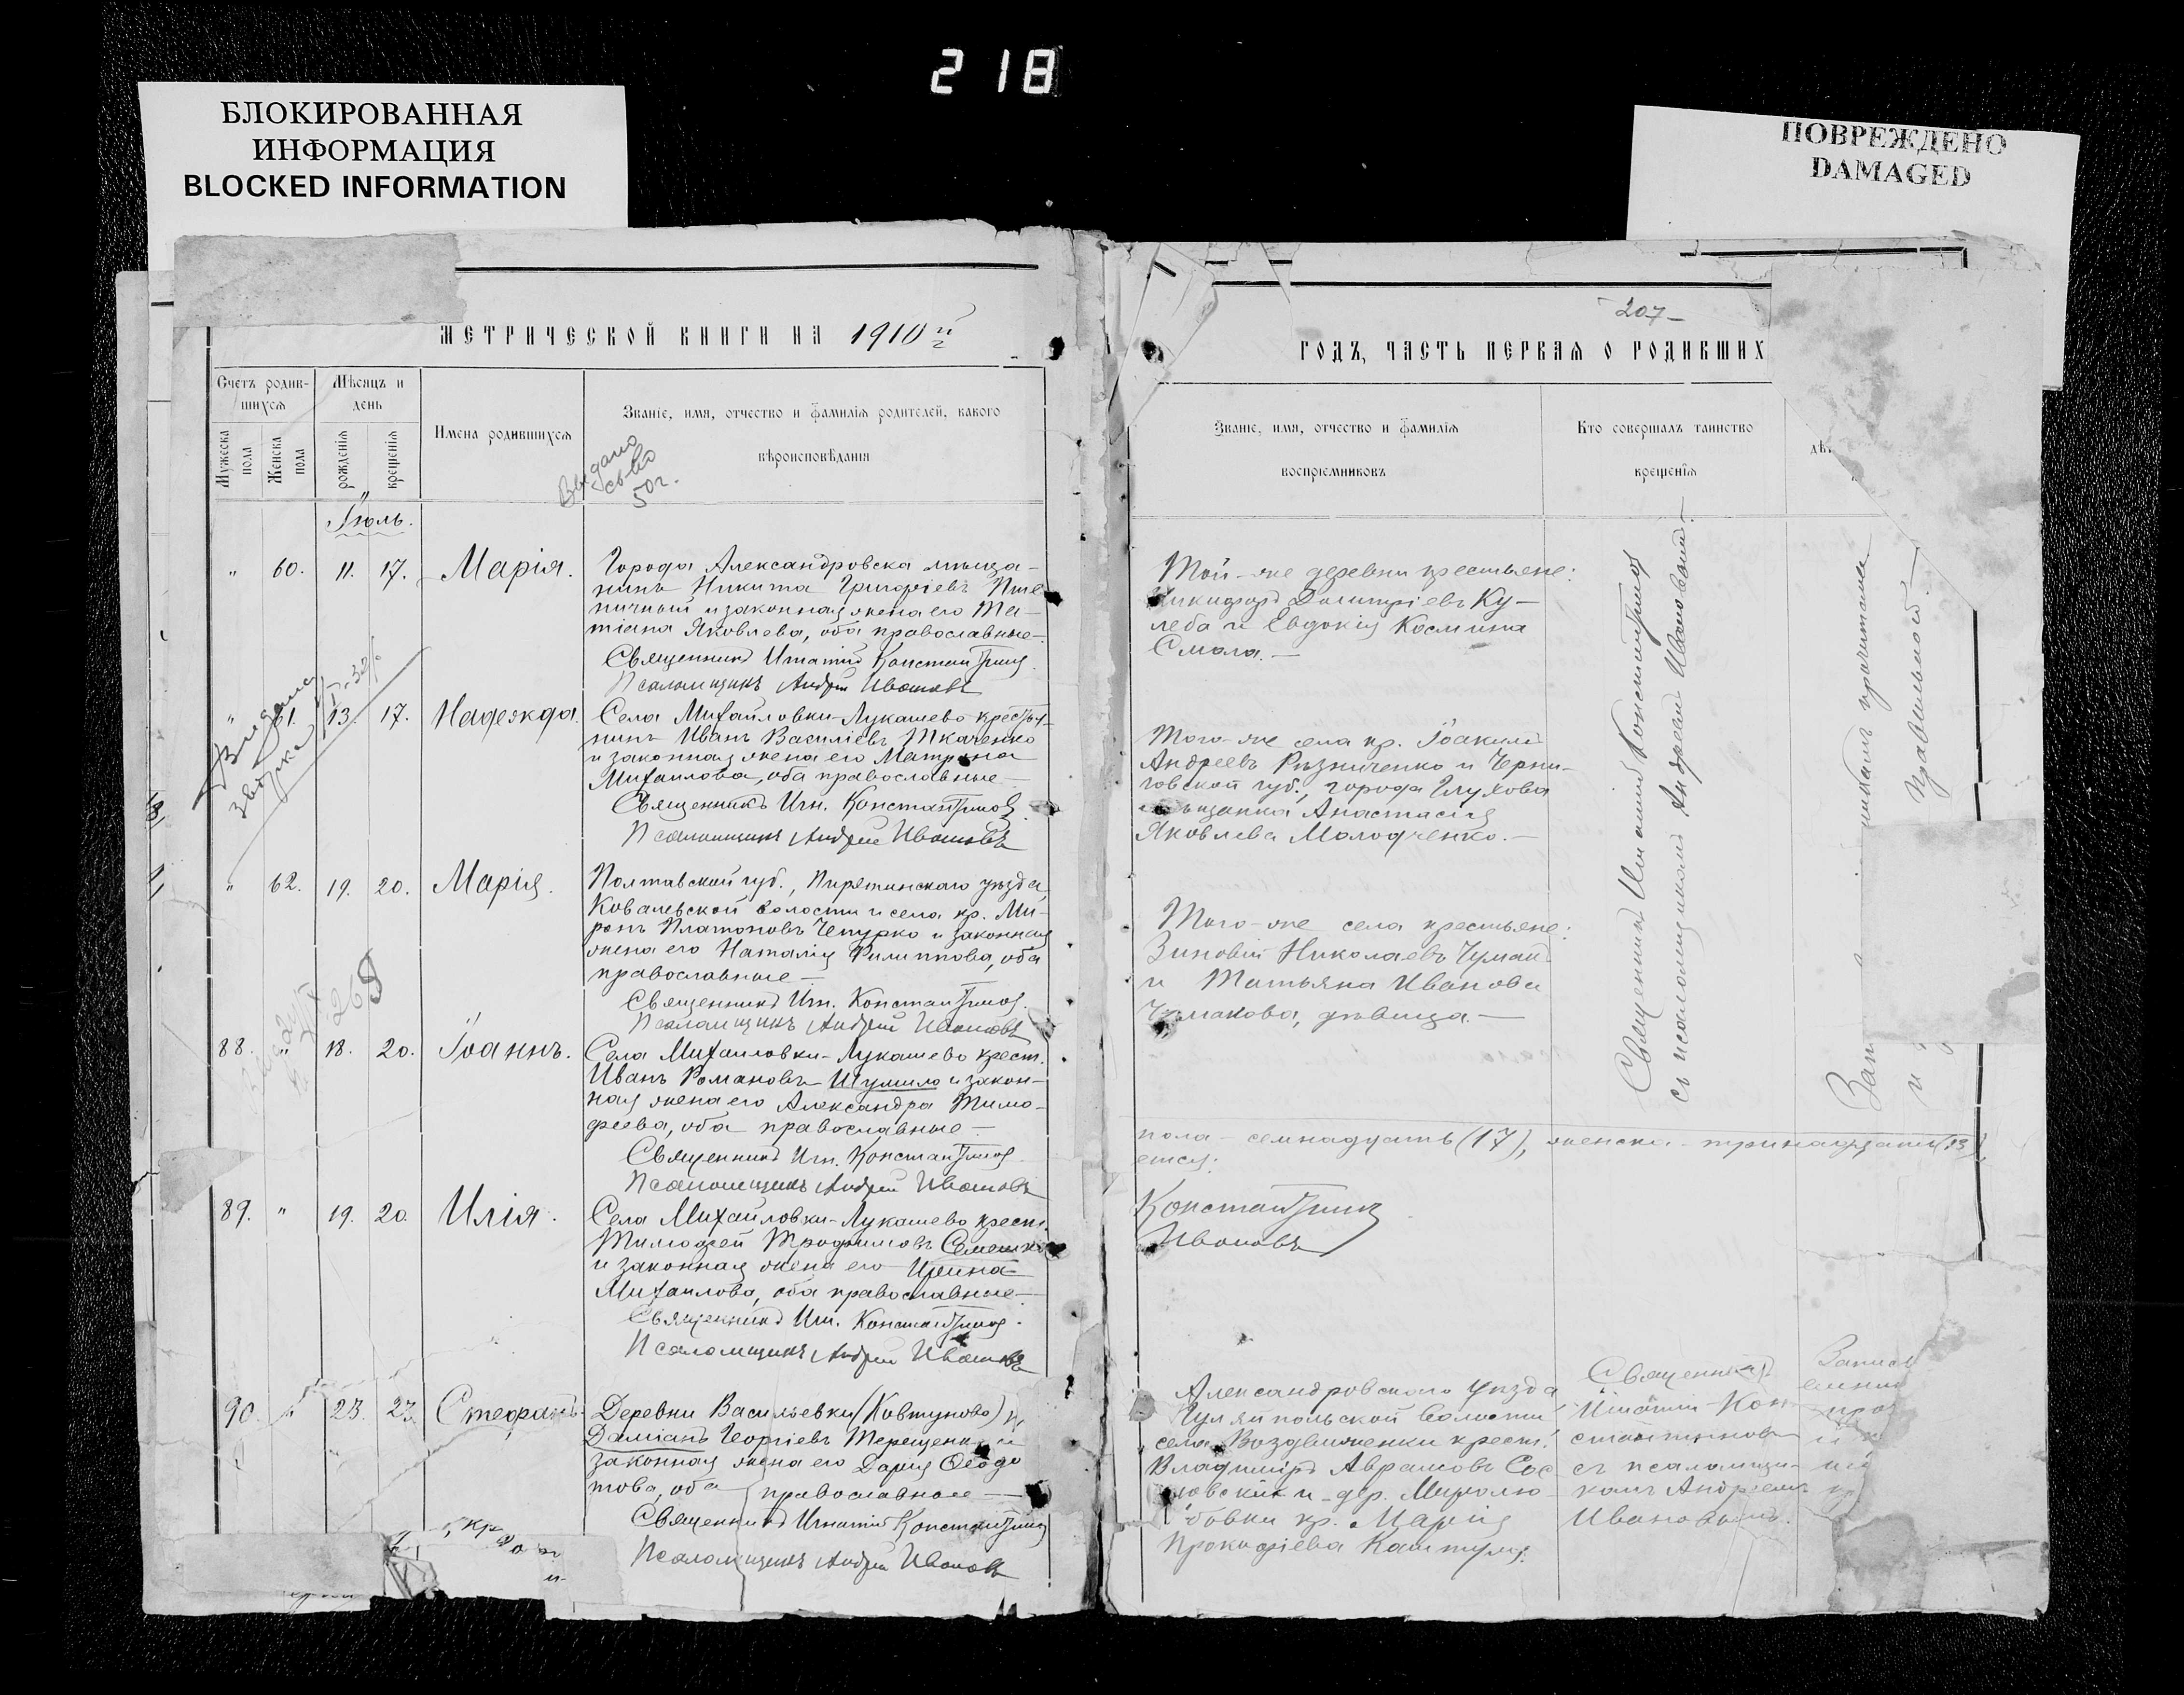 218
БЛОКИРОВАННАЯ
ИНФОРМАЦИЯ
BLOCKED INFORMATION
ПОВРЕЖДЕНО
DAMAGED
МЕТРИЧЕСКОЙ КНИГИ НА 1910й
Счетъ родив-
шихся
Мѣсяцъ и
день
Мужеска пола
Женска пола
рожденія
крещенія
Имена родившихся
Званіе, имя, отчество и фамилія родителей, какого
вѣроисповѣданія
Выдано
св-во
50 г.
Іюль.
" 60. 11. 17. Марія.
Города Александровска мѣща-
нинъ Никита Григоріевъ Пше-
ничный и законная жена его Та-
тіана Яковлева, оба православные
Священникъ Игнатій Константинов
Псаломщикъ Андрей Ивановъ
" 61. 13. 17. Надежда.
Села Михайловки-Лукашево крестья-
нинъ Иванъ Василіевъ Ткаченко
и законная жена его Матрона
Михаилова, оба православные
Священникъ Игн. Константинов
Псаломщикъ Андрей Ивановъ
" 62. 19. 20. Марія.
Полтавской губ., Пирятинскаго уѣзда,
Ковалевской волости и села кр. Ми-
ронъ Платоновъ Чепурко и законная
жена его Наталія Филиппова, оба
православные
Священникъ Игн. Константинов
Псаломщикъ Андрей Ивановъ
88. " 18. 20. Іоаннъ.
Села Михайловки-Лукашево крест.
Иванъ Романовъ Шумило и закон-
ная жена его Александра Тимо-
феева, оба православные
Священникъ Игн. Константинов
Псаломщикъ Андрей Ивановъ
89. " 19. 20. Илія.
Села Михайловки-Лукашево крест.
Тимофей Трофимовъ
и законная жена его Ирина
Михаилова, оба православные
Священникъ Игн. Константинов
Псаломщикъ Андрей Ивановъ
90. " 23. 23. Стефанъ.
Деревни Васильевки (Ковтуново)
Даміанъ Георгіевъ Терещенко и
законная жена его Дарія Ѳеодо
това, оба православные
Священникъ Игнатій Константинов
Псаломщикъ Андрей Ивановъ
207
ГОДЪ, ЧАСТЬ ПЕРВАЯ О РОДИВШИХ
Званіе, имя, отчество и фамилія
воспріемниковъ
Кто совершалъ таинство
крещенія
Той-же деревни крестьяне:
Никифоръ Димитріевъ Ку-
леба и Евдокія Космина
Смола.
Того-же села кр. Іоакимъ
Андреевъ Рѣзниченко и Черни-
говской губ., города Глухова
мѣщанка Анастасія
Яковлева Молодченко.
Того-же села крестьяне:
Зиновій Николаевъ Чумакъ
и Татьяна Иванова
Чумакова, дѣвица.
Священникъ Игнатій Константинов
съ псаломщикомъ Андреемъ Ивановымъ
правильной
пола - семнадцать (17), женска - тринадцать (13),
Константинов
Ивановъ
Александровскаго уѣзда
Гуляйпольской волости
села Воздвиженки крест.
Владиміръ Аврамовъ Сос
новскій и дер. Миролю-
бовки кр. Марія
Прокофіева
Священникъ
Игнатій Кон
стантинов
съ псаломщи-
комъ Андреемъ
Ивановымъ.